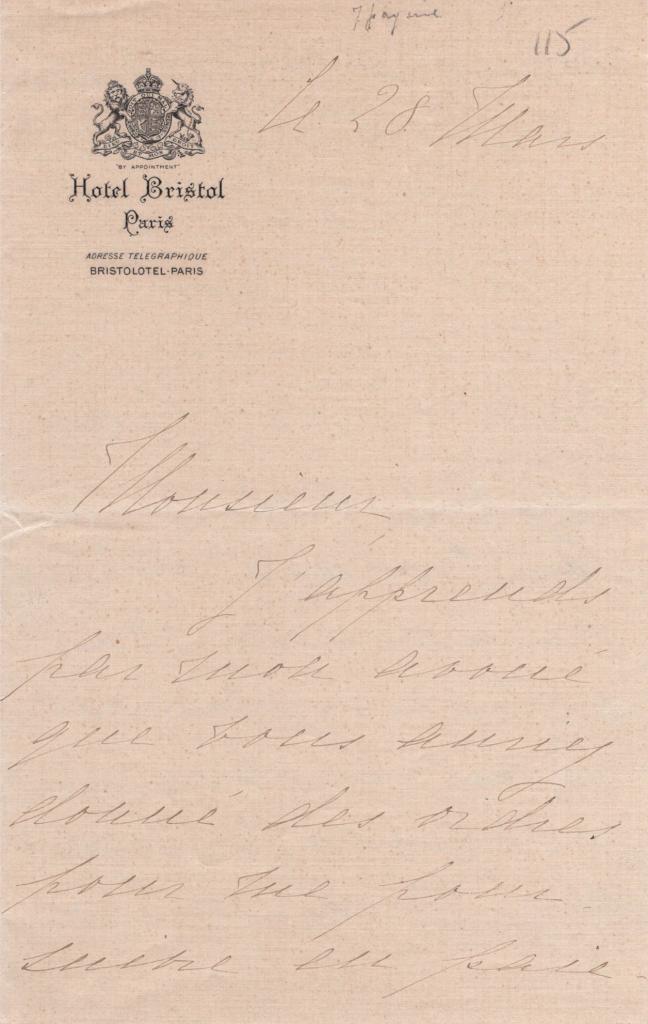 115
Le 28 Mars
"BY APPOINTMENT"
Hotel Bristol
Paris
ADRESSE TELEGRAPHIQUE
BRISTOLOTEL-PARIS
Monsieur,
J'apprends
par mon avoué
que vous auriez
donné des ordres
pour me pour-
suivre en paie-